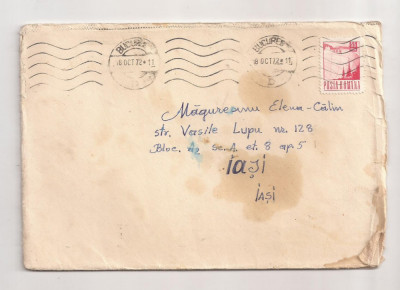 BUCUREȘTI
18 OCT 72
BUCUREȘTI
18 OCT 72
POSTA ROMANA
Măgureanu Elena-Călin
str. Vasile Lupu nr. 128
Bloc. sc. A. et. 8 ap 5
iași
IAȘI